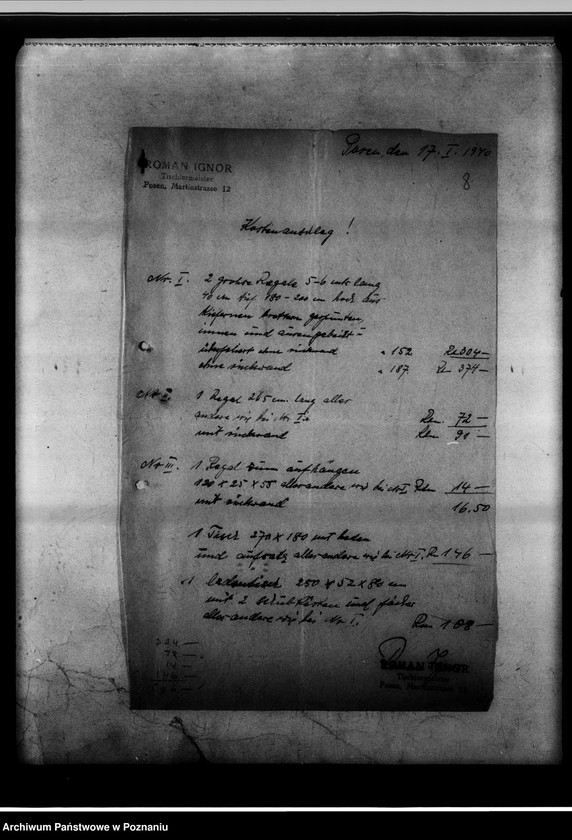 ROMAN IGNOR
Tischlermeister
Posen, Martinstrasse 12
Posen, den 17. I. 1940
8
Kostenanschlag!
Nr. I. 2 grosse Regale 5-6 mtr lang
40 cm tief 180-200 cm hoch aus
Kiefernen brettern
innen und aussen gebeizt
ohne rückwand " 152 Rm 304—
rückwand " 187. Rm 374—
Nr II. 1 Regal 265 cm. lang alles
andere wie bei Nr I. Rm. 72—
mit rückwand Rm. 90—
Nr III. 1 Regal zum aufhängen
120 x 25 x 55 alles andere wie bei Nr I. Rm. 14—
mit rückwand 16.50
1 Tisch 270 x 180 mit boden
und aufsatz alles andere wie bei Nr I. Rm 146—
1 ladentisch 250 x 52 x 80 cm
mit 2 und fächer
alles andere wie bei Nr. I. Rm 108—
ROMAN IGNOR
Tischlermeister
Posen, Martinstrasse 12
Archiwum Państwowe w Poznaniu